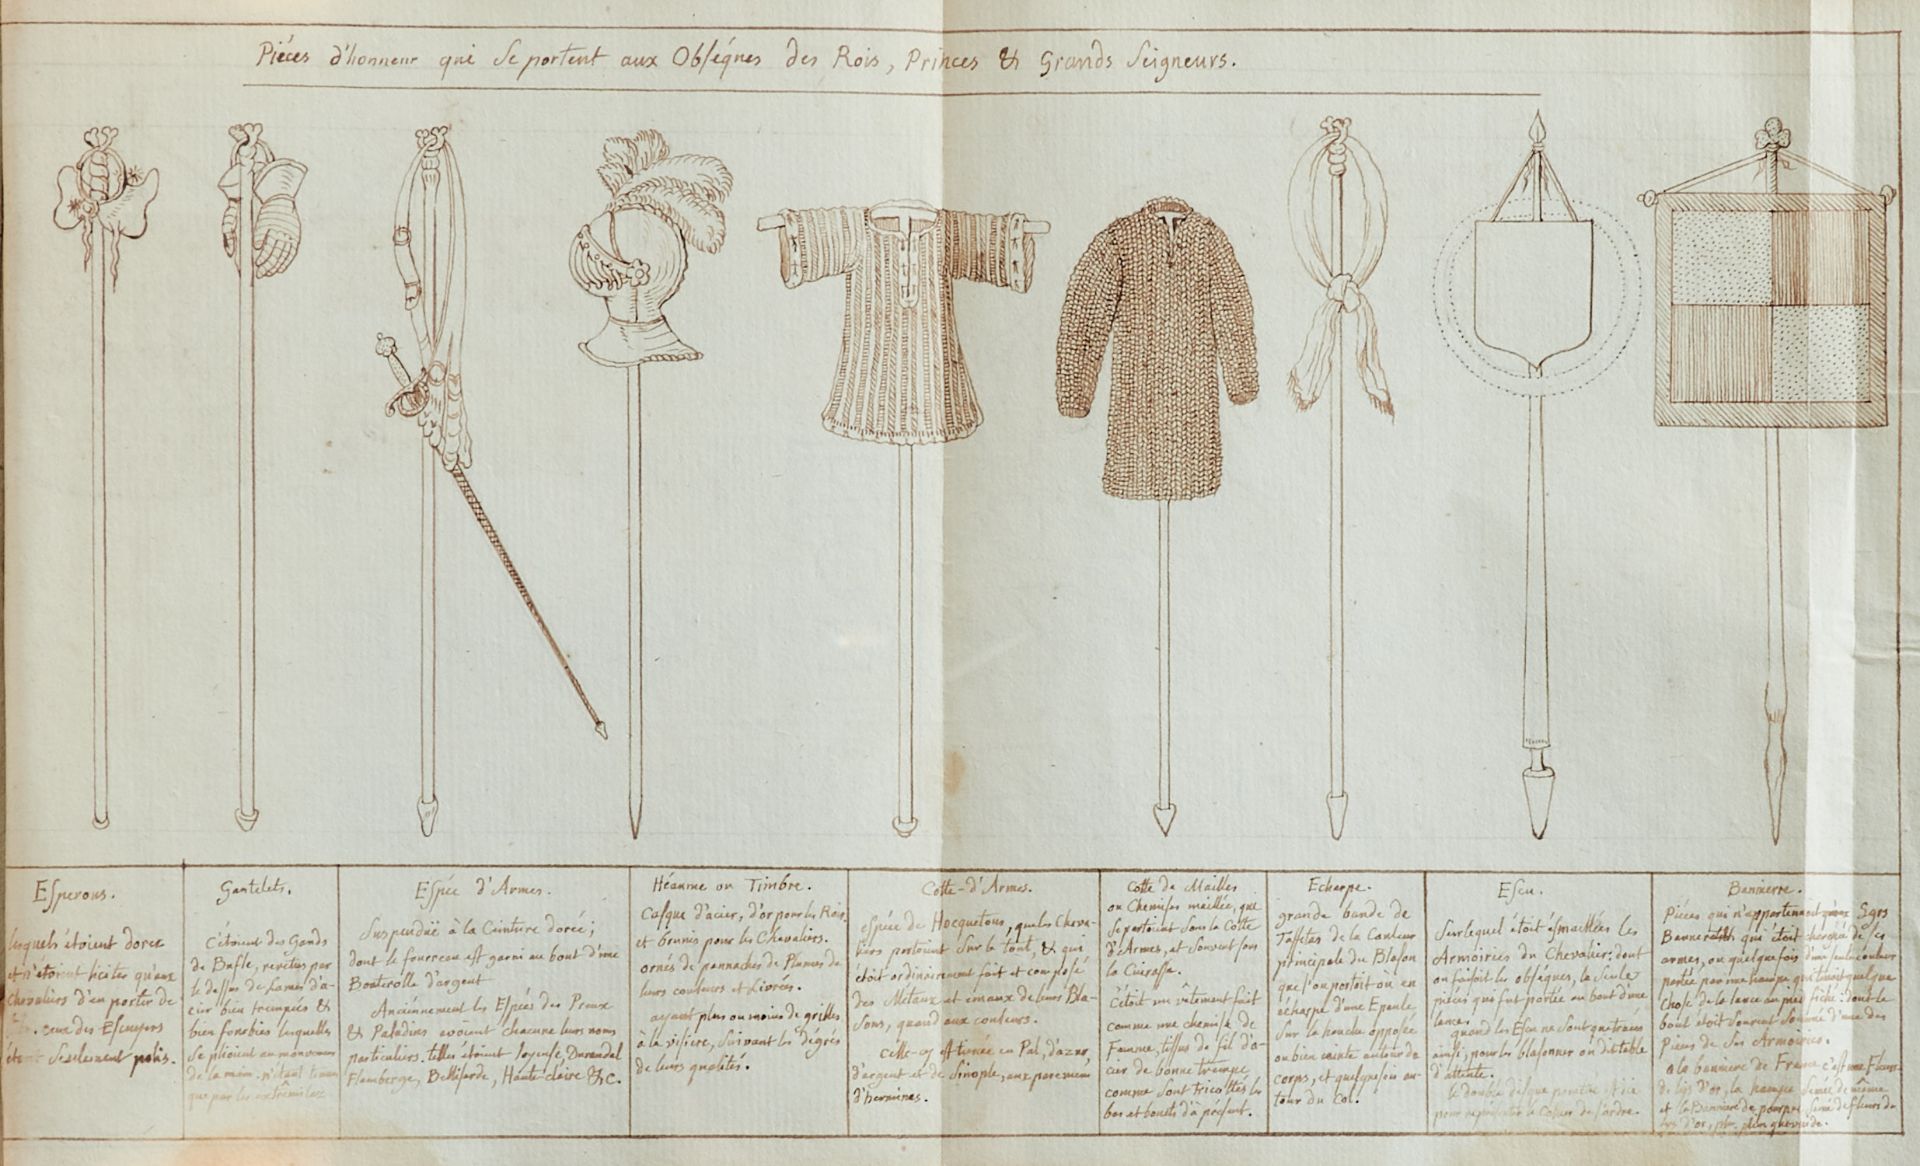 Piéces d'honneur qui se portent aux Obséques des Rois, Princes & Grands Seigneurs.
Esperons.
lesquels étoient dorez
et n'étoient licites qu'aux
Chevaliers d'en porter de
ceux des Escuyers
étoient Seulement polis.
Gantelets.
C'étoient des Gands
de Bufle, revétus par
le dessus de Lames d'a-
cier bien trempées &
bien forbies lesquelles
se plioient au mouvement
de la main. n'étant tenues
que par les extrémitez
Espée d'Armes.
Suspenduë à la Ceinture dorée;
dont le fourreau est garni au bout d'une
Bouterolle d'argent
Anciennement les Espées des Preux
& Paladins avoient chacune leurs noms
particuliers. telles étoient Joyeuse, Durandal
Flamberge, Bellisarde, Haute-claire &c.
Héaume ou Timbre.
Casque d'acier, d'or pour les Rois,
et brunis pour les Chevaliers.
ornés de pannaches de Plumes de
leurs couleurs et Livrées.
ayant plus ou moins de grilles
à la visiere, suivant les dégrés
de leurs qualités.
Cotte-d'Armes.
espéce de Hocquetons, que les Cheva-
liers portoient sur le tout, & qui
étoit ordinairement fait et composé
des Métaux et émaux de leurs Bla-
sons, quand aux couleurs.
celle-cy est tiercée en Pal, d'azur,
d'argent et de Sinople, aux parements
d'hermines.
Cotte de Mailles
ou Chemises maillée, que
se portoient sous la Cotte
d'Armes, et souvent sous
la Cuirasse.
C'étoit un vêtement fait
comme une chemise de
Femme, tissus de fil d'a-
cier de bonne trempe
comme sont tricottés les
bas et bonets d'à présent.
Echarpe.
grande bande de
Taffetas de la Couleur
principale du Blason
que l'on portoit ou en
écharpe d'une Epaule
sur la hanche opposée
ou bien ceinte autour du
corps, et quelquefois au-
tour du Col.
Escu.
Sur lequel étoit ésmaillées les
Armoiries du Chevalier; dont
on faisoit les obséques, la seule
piéces qui fut portée au bout d'une
lance.
quand les Escu ne sont que tracés
ainsi, pour les blasonner on dit table
d'attente.
le double disque pointé est icy
pour représenter le Colier de l'ordre.
Bannierre.
Piéces qui n'appartenoit qu'aux Sgrs
Bannerets qui étoit chargée de ses
armes, ou quelquefois d'une seule couleur
portée par une hampe qui tenoit quelque
Chose de la lance au pied fiché: dont le
bout étoit souvent sommé d'une des
Piéces de ses Armoiries.
a la banniere de France c'est une Fleur
de lys d'or, la hampe semée de même
et la Banniere de pourpre semé de fleurs de
lys d'or,